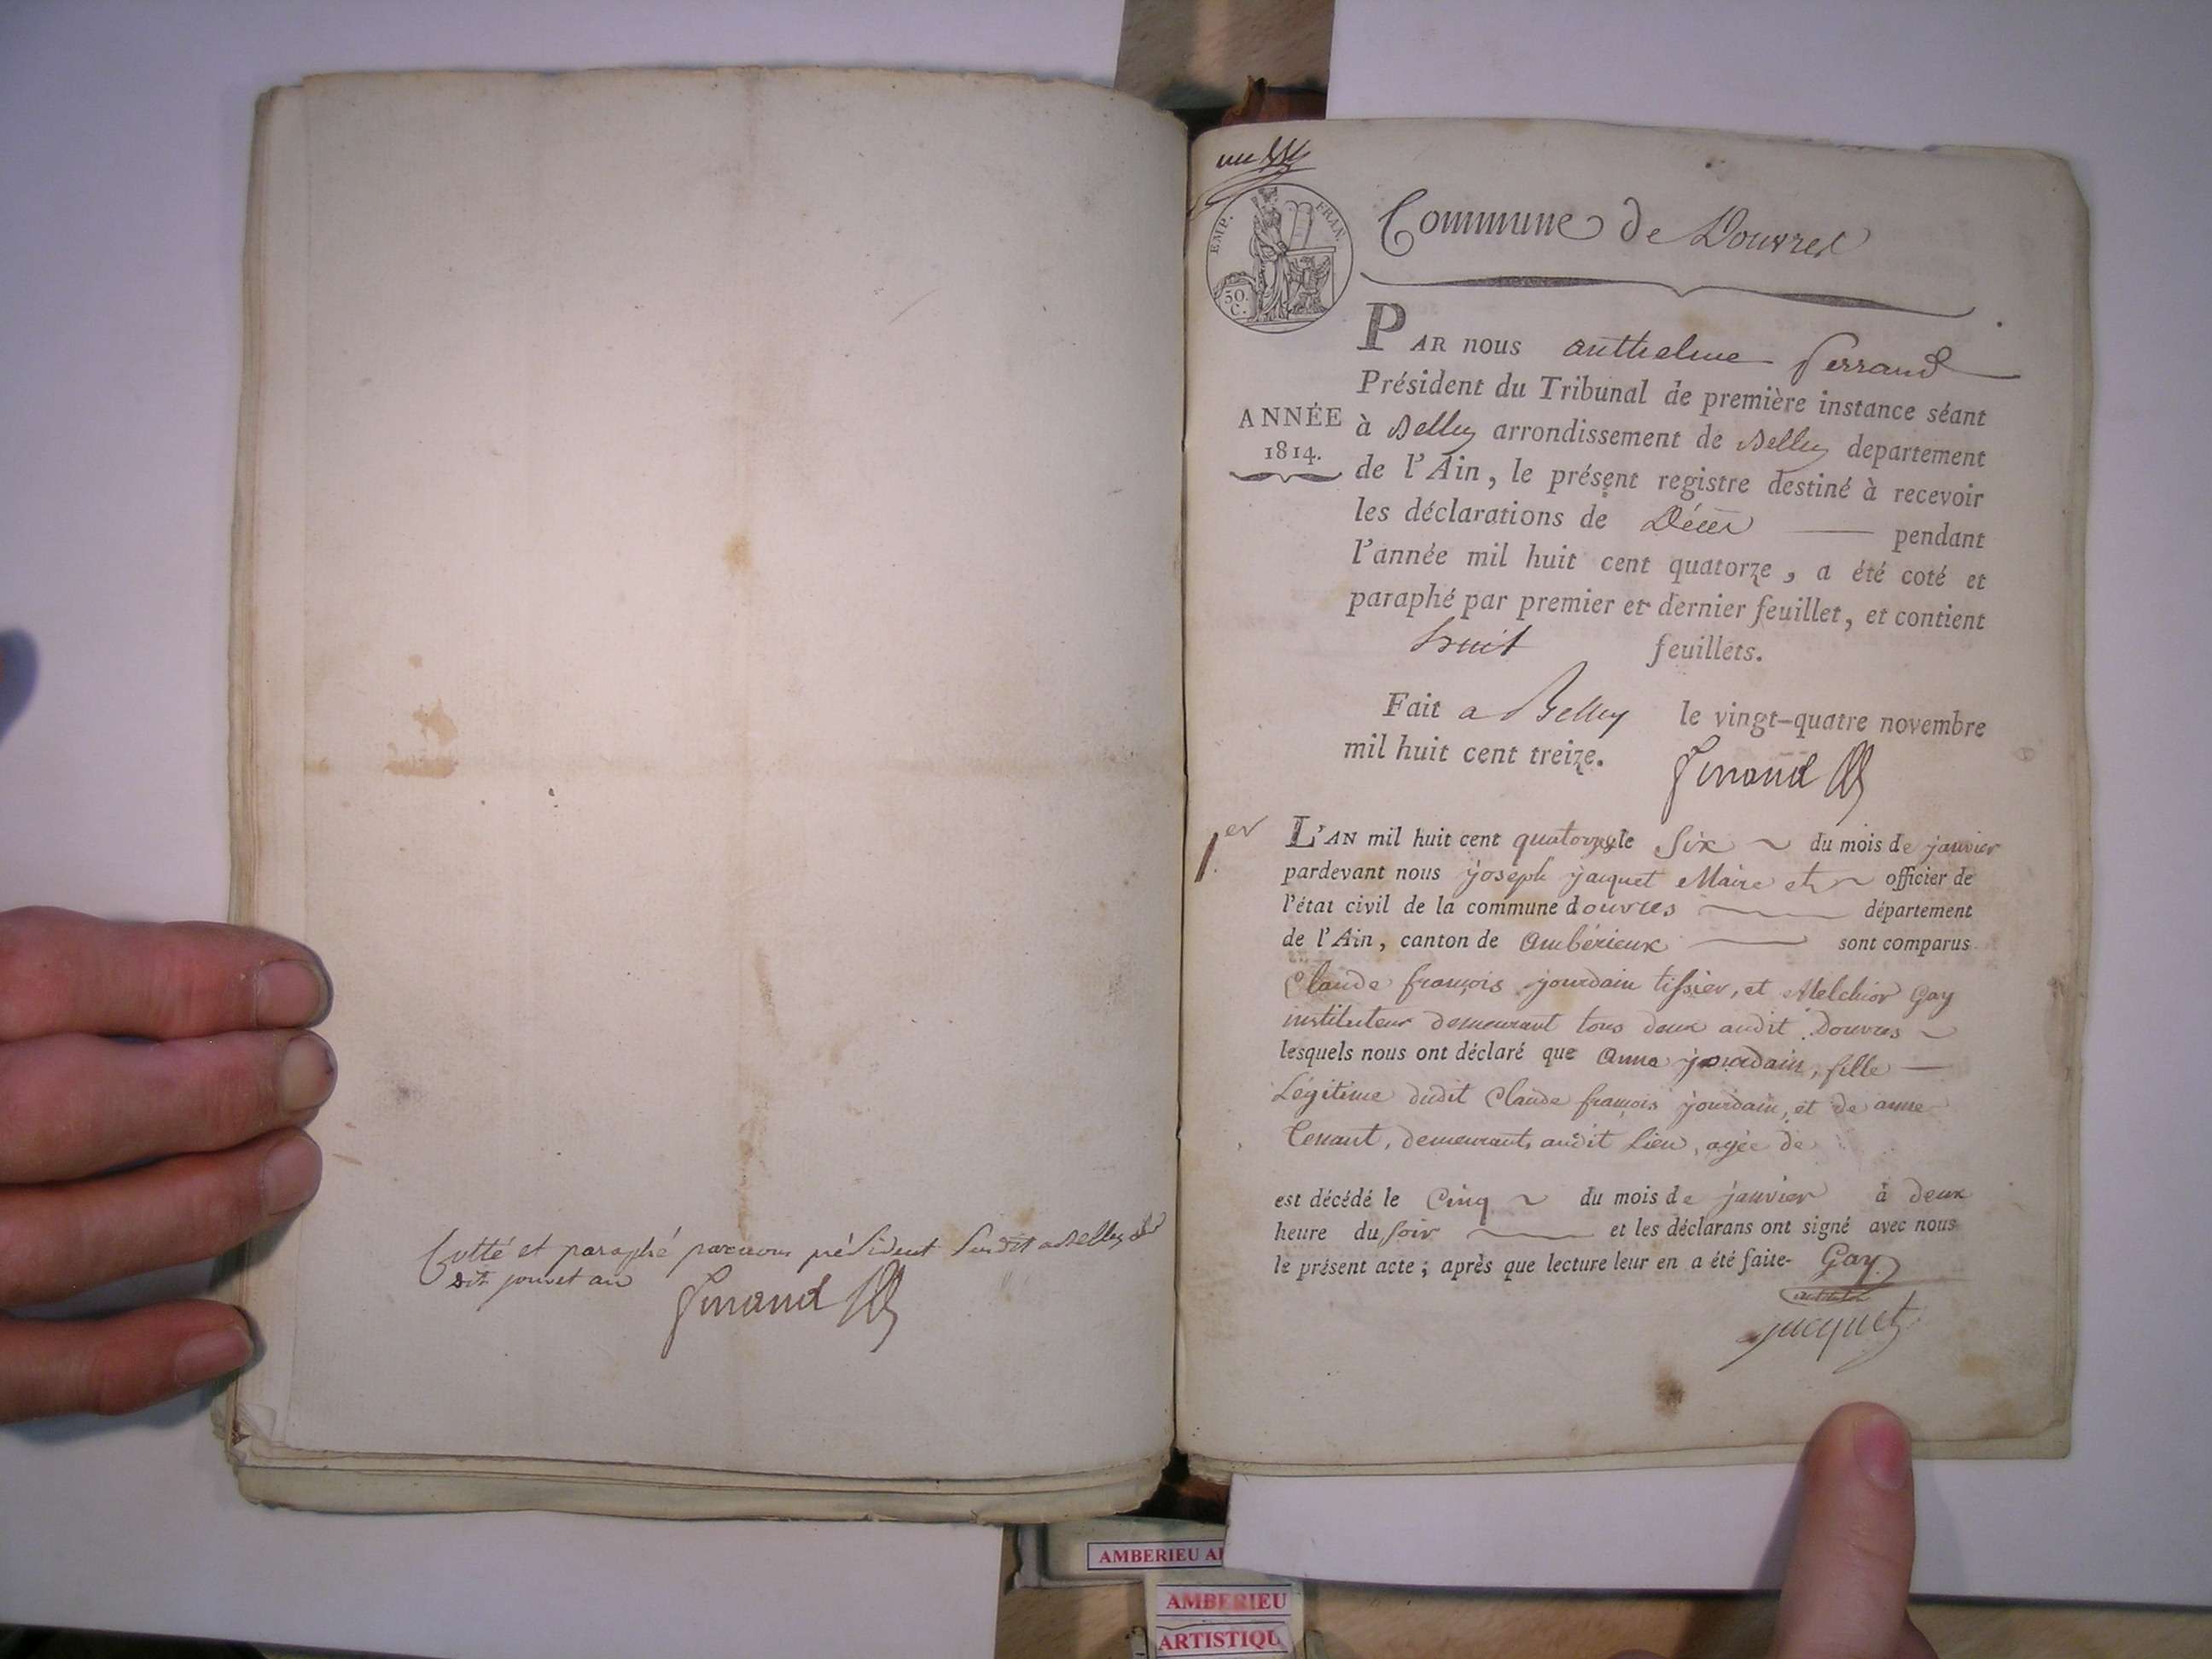 Cotté et paraphé par nous président susdit a Belley
dit jour et an
ferrand
un
EMP. FRAN.
50.
C.
Commune de Douvres
PAR nous anthelme ferrand
Président du Tribunal de première instance séant
ANNÉE
1814.
à Belley arrondissement de Belley departement
de l'Ain, le présent registre destiné à recevoir
les déclarations de Décès pendant
l'année mil huit cent quatorze, a été coté et
paraphé par premier et dernier feuillet, et contient
huit feuillets.
Fait a Belley le vingt-quatre novembre
mil huit cent treize.
ferrand
1er
L'AN mil huit cent quatorze le Six du mois de janvier
pardevant nous joseph jacquet Maire et officier de
l'état civil de la commune douvres département
de l'Ain, canton de Ambérieux sont comparus
Claude françois jourdain tissier, et Melchior Gay
instituteur demeurant tous deux audit Douvres
lesquels nous ont déclaré que Anne jourdain, fille
Légitime dudit Claude françois jourdain, et de anne
Tenant, demeurants audit Lieu, agée de
est décédé le Cinq du mois de janvier à deux
heure du soir et les déclarans ont signé avec nous
le présent acte; après que lecture leur en a été faite- Gay
jacquet
AMBERIEU
AMBERIEU
ARTISTIQU